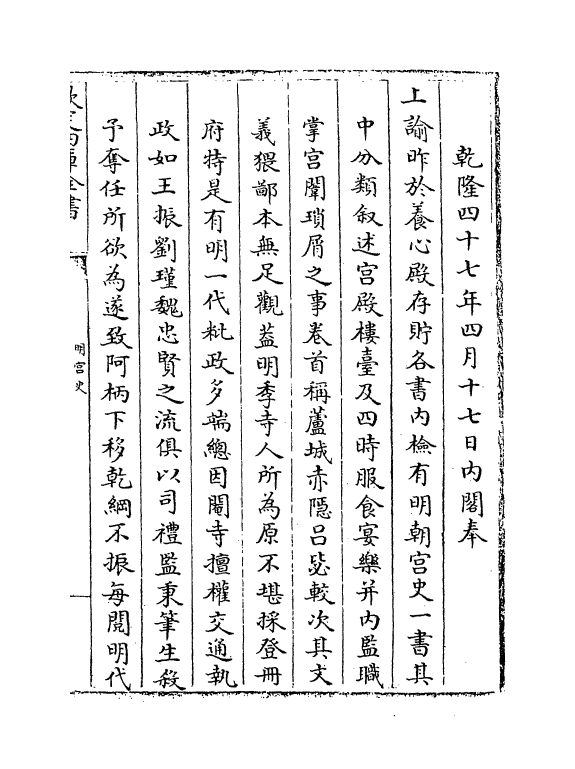 乾隆四十七年四月十七日内閣奉
上諭昨於養心殿存貯各書内檢有明朝宫史一書其
中分類叙述宫殿樓臺及四時服食宴樂并内監職
掌宫闈瑣屑之事卷首稱蘆城赤隱吕毖較次其文
義猥鄙本無足觀葢明季寺人所為原不堪採登冊
府特是有明一代粃政多端總因閹寺擅權交通執
政如王振劉瑾魏忠賢之流俱以司禮監秉筆生殺
予奪任所欲為遂致阿柄下移乾綱不振每閱明代
欽定四庫全書
明宫史
一